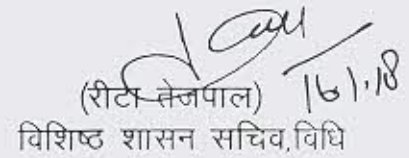 (रीटा तेजपाल) 16/1/18
विशिष्ठ शासन सचिव,विधि